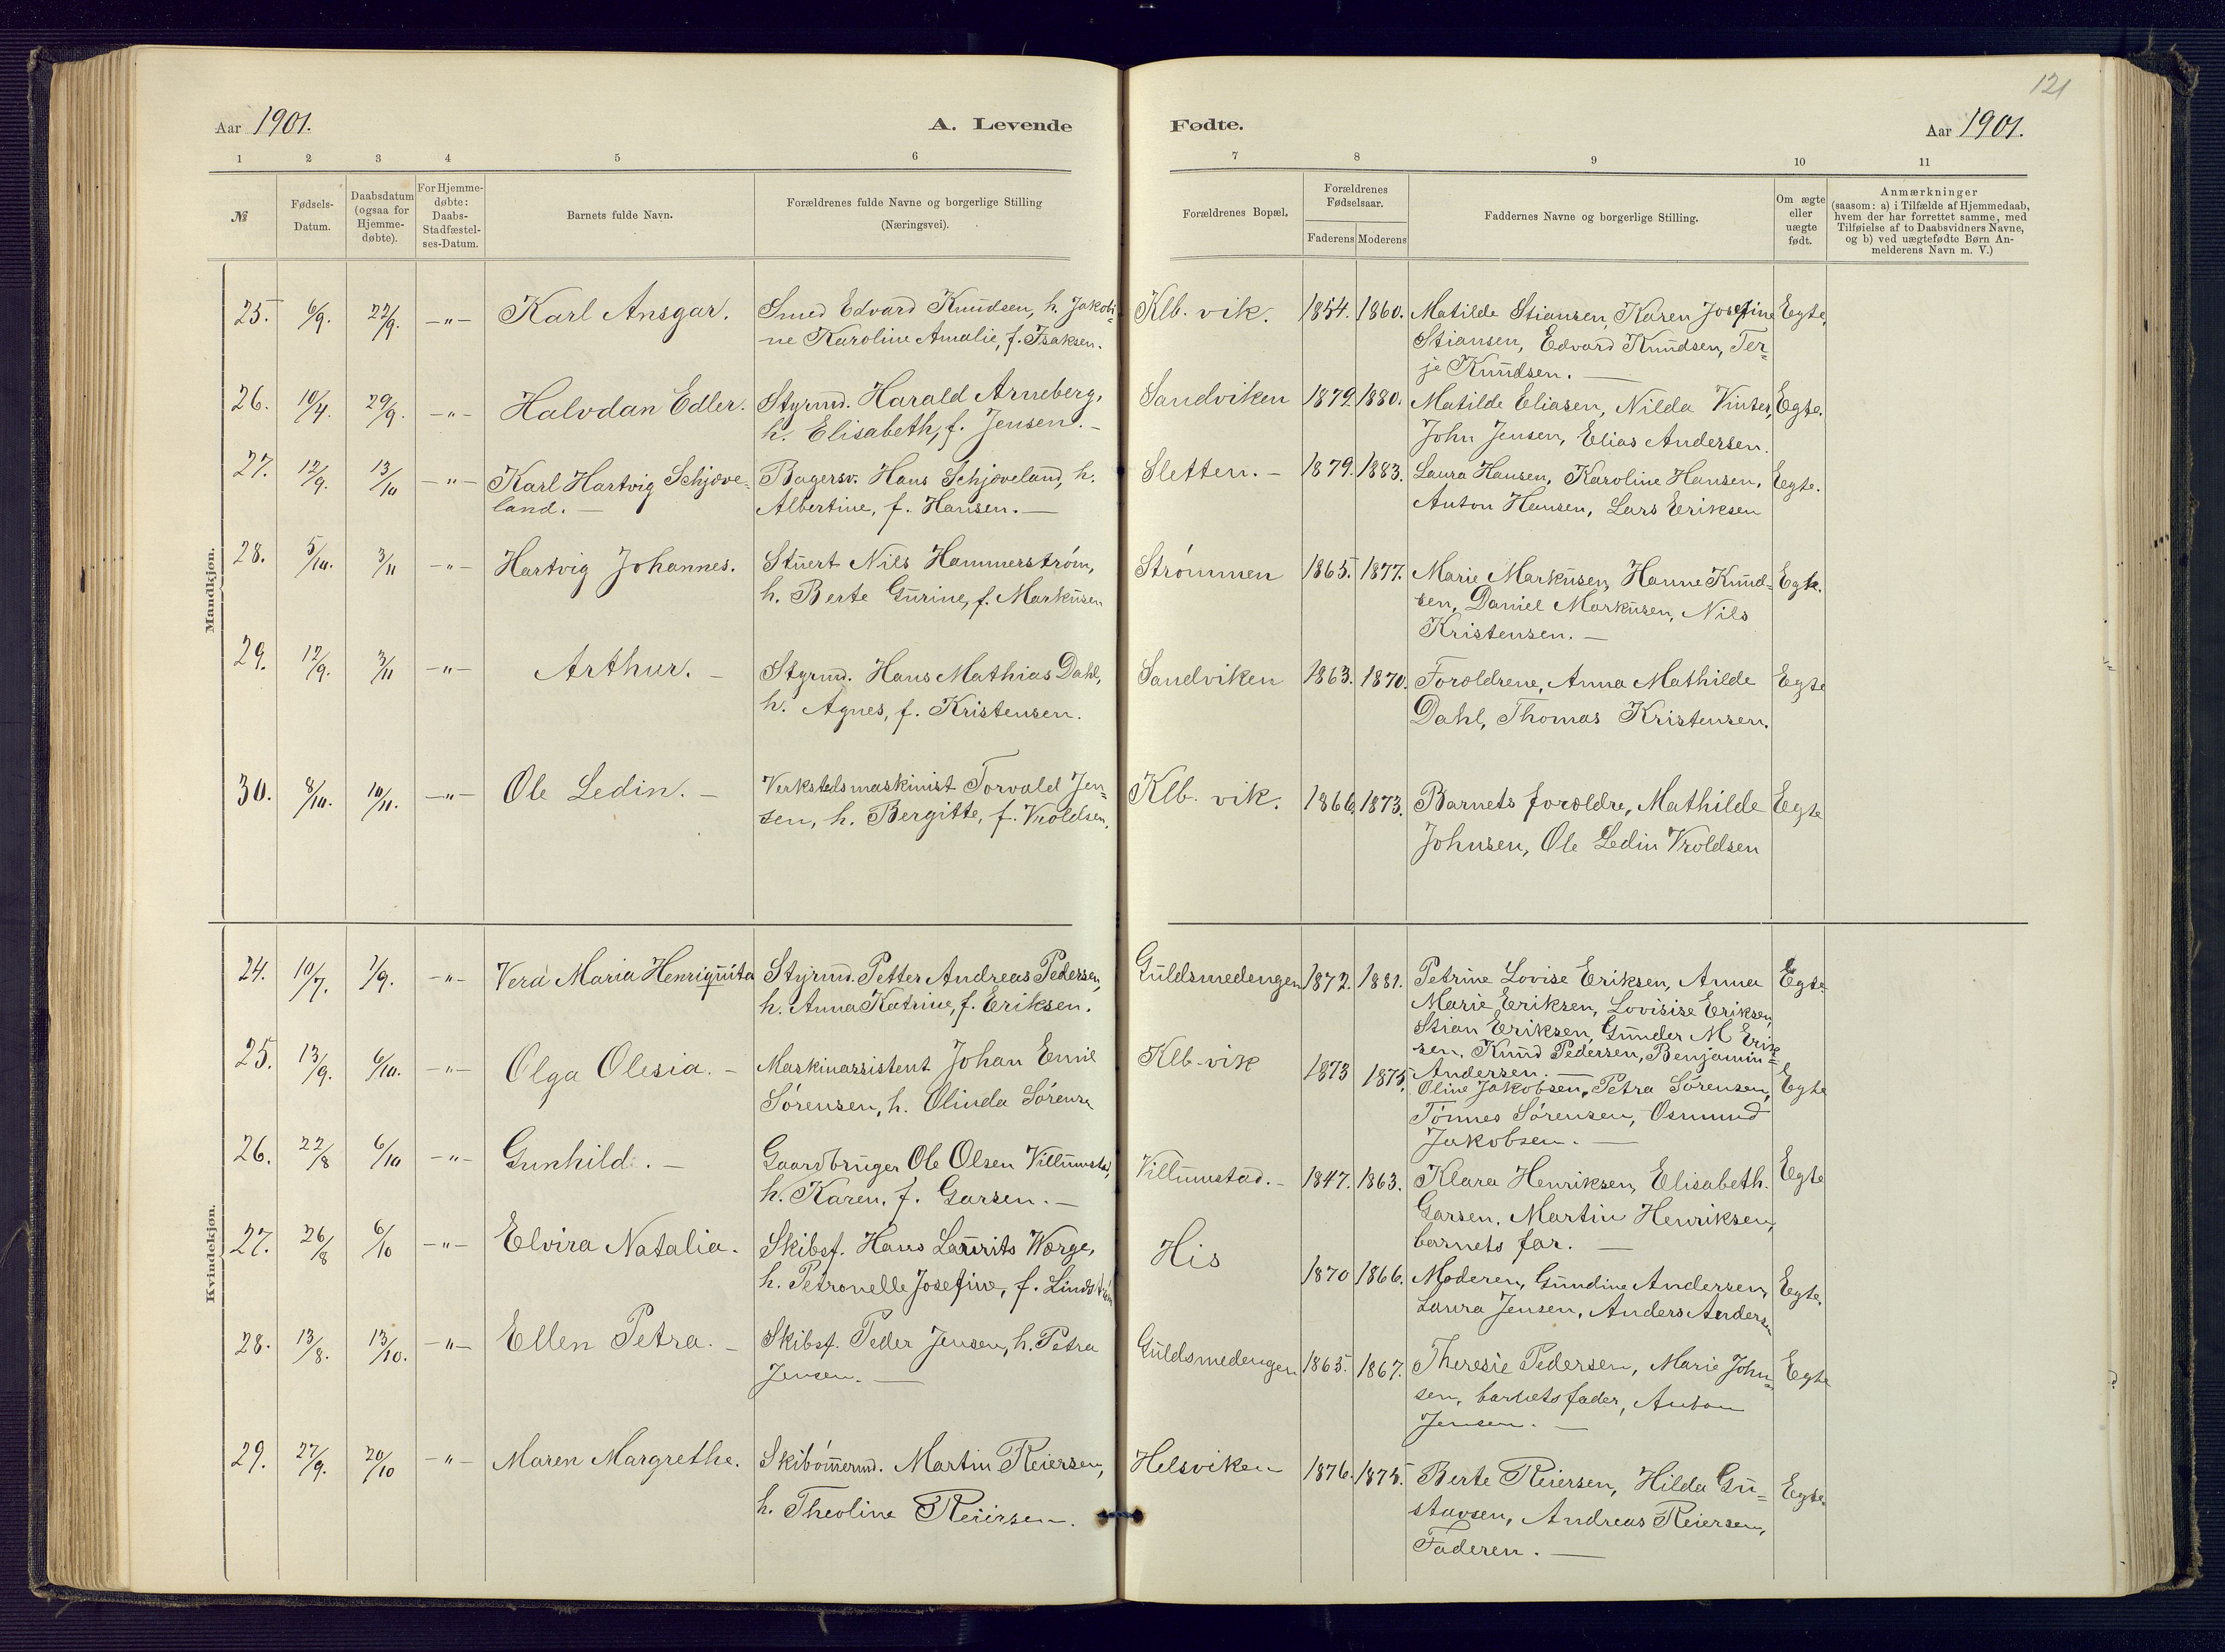 121
Aar 1901.
A. Levende
Fødte.
Aar 1901.
1 2 3 4 5 6 7 8 9 10 11
№
Fødsels-
Datum.
Daabsdatum
(ogsaa for
Hjemme-
døbte).
For Hjemme-
døbte:
Daabs-
Stadfæstel-
ses-Datum.
Barnets fulde Navn.
Forældrenes fulde Navne og borgerlige Stilling
(Næringsvei).
Forældrenes Bopæl.
Forældrenes
Fødselsaar.
Faderens Moderens
Faddernes Navne og borgerlige Stilling.
Om ægte
eller
uægte
født.
Anmærkninger
(saasom: a) i Tilfælde af Hjemmedaab,
hvem der har forrettet samme, med
Tilføielse af to Daabsvidners Navne,
og b) ved uægtefødte Børn An-
melderens Navn m. V.)
Mandkjøn.
25. 6/9. 22/9. —"— Karl Ansgar. Smed Edvard Knudsen, h. Jakobi-
ne Karoline Amalie, f. Isaksen.
Klb. vik. 1854. 1860. Matilde Stiansen, Karen Josefine Egte.
Stiansen, Edvard Knudsen, Ter-
je Knudsen. —
26. 10/4. 29/9. —"— Halvdan Edler. Styrmd. Harald Arneberg,
h. Elisabeth, f. Jensen. —
Sandviken 1879 1880. Matilde Eliasen, Nilda Vinter, Egte.
John Jensen, Elias Andersen.
27. 12/9. 13/10 —"— Karl Hartvig Schjøve-
land. —
Bagersv. Hans Schjøveland, h.
Albertine, f. Hansen. —
Sletten. — 1879. 1883. Laura Hansen, Karoline Hansen, Egte.
Anton Hansen, Lars Eriksen
28. 5/10. 3/11 —"— Hartvig Johannes. Stuert Nils Hammerstrøm,
h. Berte Gurine, f. Markusen
Strømmen 1865. 1877. Marie Markusen, Hanne Knud- Egte.
sen, Daniel Markusen, Nils
Kristensen. —
29. 12/9. 3/11 —"— Arthur. — Styrmd. Hans Mathias Dahl,
h. Agnes, f. Kristensen.
Sandviken 1863. 1870. Forældrene, Anna Mathilde Egte
Dahl, Thomas Kristensen.
30. 8/10. 10/11. —"— Ole Ledin. — Verkstedsmaskinist Torvald Jen-
sen, h. Bergitte, f. Vroldsen.
Klb. vik. 1866. 1873. Barnets forældre, Mathilde Egte
Johnsen, Ole Ledin Vroldsen
Kvindekjøn.
24. 10/7. 1/9. —"— Vera Maria Henriquita Styrmd. Petter Andreas Pedersen,
h. Anna Katrine, f. Eriksen.
Guldsmedengen 1872. 1881. Petrine Lovise Eriksen, Anna Egte.
Marie Eriksen, Lovisise Eriksen,
Stian Eriksen, Gunder M Erik
sen, Knud Pedersen, Benjamin
Andersen. —
25. 13/9. 6/10. —"— Olga Olesia. — Maskinassistent Johan Emil
Sørensen, h. Olinda Sørensen
Klb-vik 1873 1875. Oline Jakobsen, Petra Sørensen, Egte
Tønnes Sørensen, Osmund
Jakobsen. —
26. 22/8 6/10 —"— Gunhild. — Gaardbruger Ole Olsen Villumstad,
h. Karen, f. Garsen. —
Villumstad. — 1847. 1863. Klara Henriksen, Elisabeth. Egte
Garsen, Martin Henriksen,
barnets far. —
27. 26/8 6/10 —"— Elvira Natalia. Skibsf. Hans Laurits Worge,
h. Petronelle Josefine, f. Lindstrøm
His 1870 1866. Moderen, Gundine Andersen, Egte.
Laura Jensen, Anders Andersen
28. 13/8. 13/10. —"— Ellen Petra. — Skibsf. Peder Jensen, h. Petra
Jensen. —
Guldsmedengen 1865. 1867. Theresie Pedersen, Marie John- Egte
sen, barnets fader, Anton
Jensen. —
29. 27/9. 20/10 —"— Maren Margrethe. Skibtømmermd. Martin Reiersen,
h. Theoline Reiersen.
Helsviken 1876. 1875. Berte Reiersen, Hilda Gu- Egte.
stavsen, Andreas Reiersen,
Faderen. —